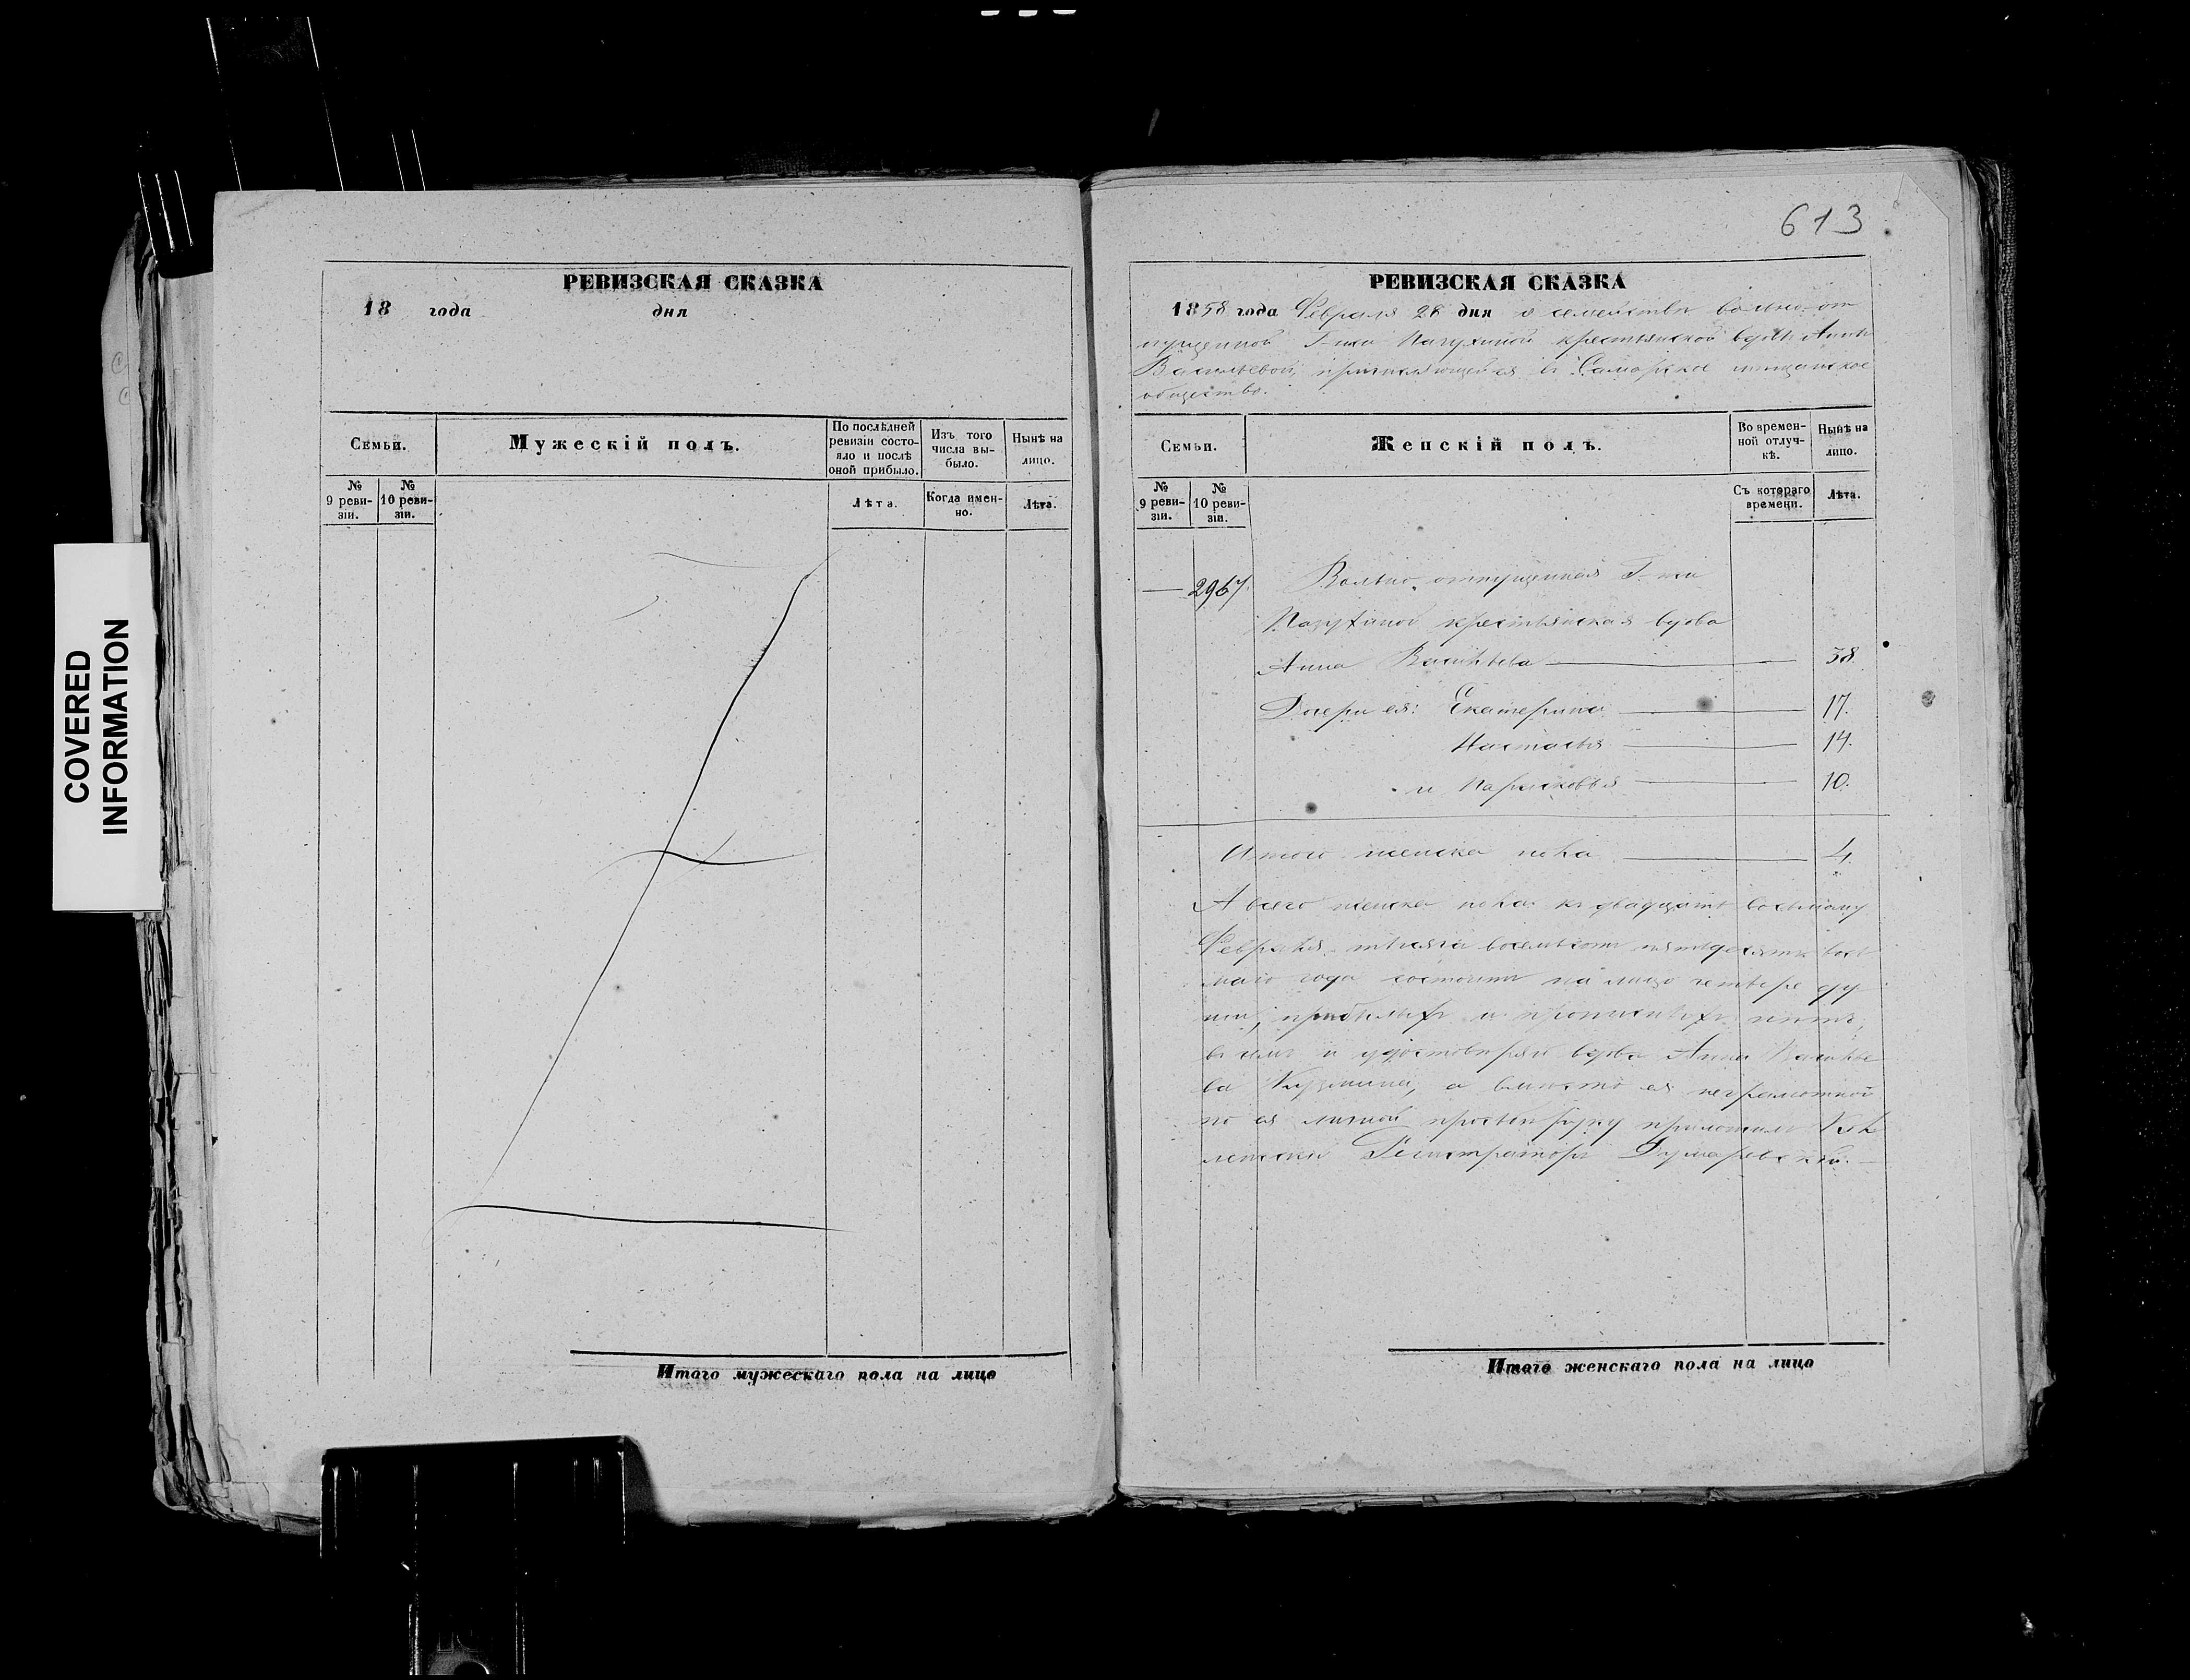 COVERED
INFORMATION
РЕВИЗСКАЯ СКАЗКА
18 года дня
Семьи.
Мужескій полъ.
По послѣдней ревизіи состояло и послѣ оной прибыло.
Изъ того числа выбыло.
Нынѣ на лицо.
№ 9 ревизіи.
№ 10 ревизіи.
Лѣта.
Когда именно.
Лѣта.
Итого мужескаго пола на лицо
613
РЕВИЗСКАЯ СКАЗКА
1858 года Февраля 28 дня о семействѣ вольно-от
пущенной Г-жи крестьянской вдовѣ Аннѣ
Васильевой, въ Самарское мѣщанское
общество.
Семьи.
Женскій полъ.
Во временной отлучкѣ.
Нынѣ на лицо.
№ 9 ревизіи.
№ 10 ревизіи.
Съ котораго времени.
Лѣта.
— 2967. Вольно отпущенная Г-жи
крестьянская вдова
Анна Васильева — 38.
Дочери ея: Екатерина — 17.
Настасья — 14.
и Парасковья — 10.
Итого женска пола — 4.
А всего женска пола къ двадцать восьмому
Февраля тысяча восемьсотъ пятьдесятъ вось
маго года состоитъ на лицо четыре ду
ши, прибылыхъ и прописныхъ нѣтъ,
въ чемъ и удостовѣряю вдова Анна Василье
ва а вмѣсто ея неграмотной
по ея личной прозьбѣ руку приложилъ Кол
лежскій Регистраторъ
Итого женскаго пола на лицо